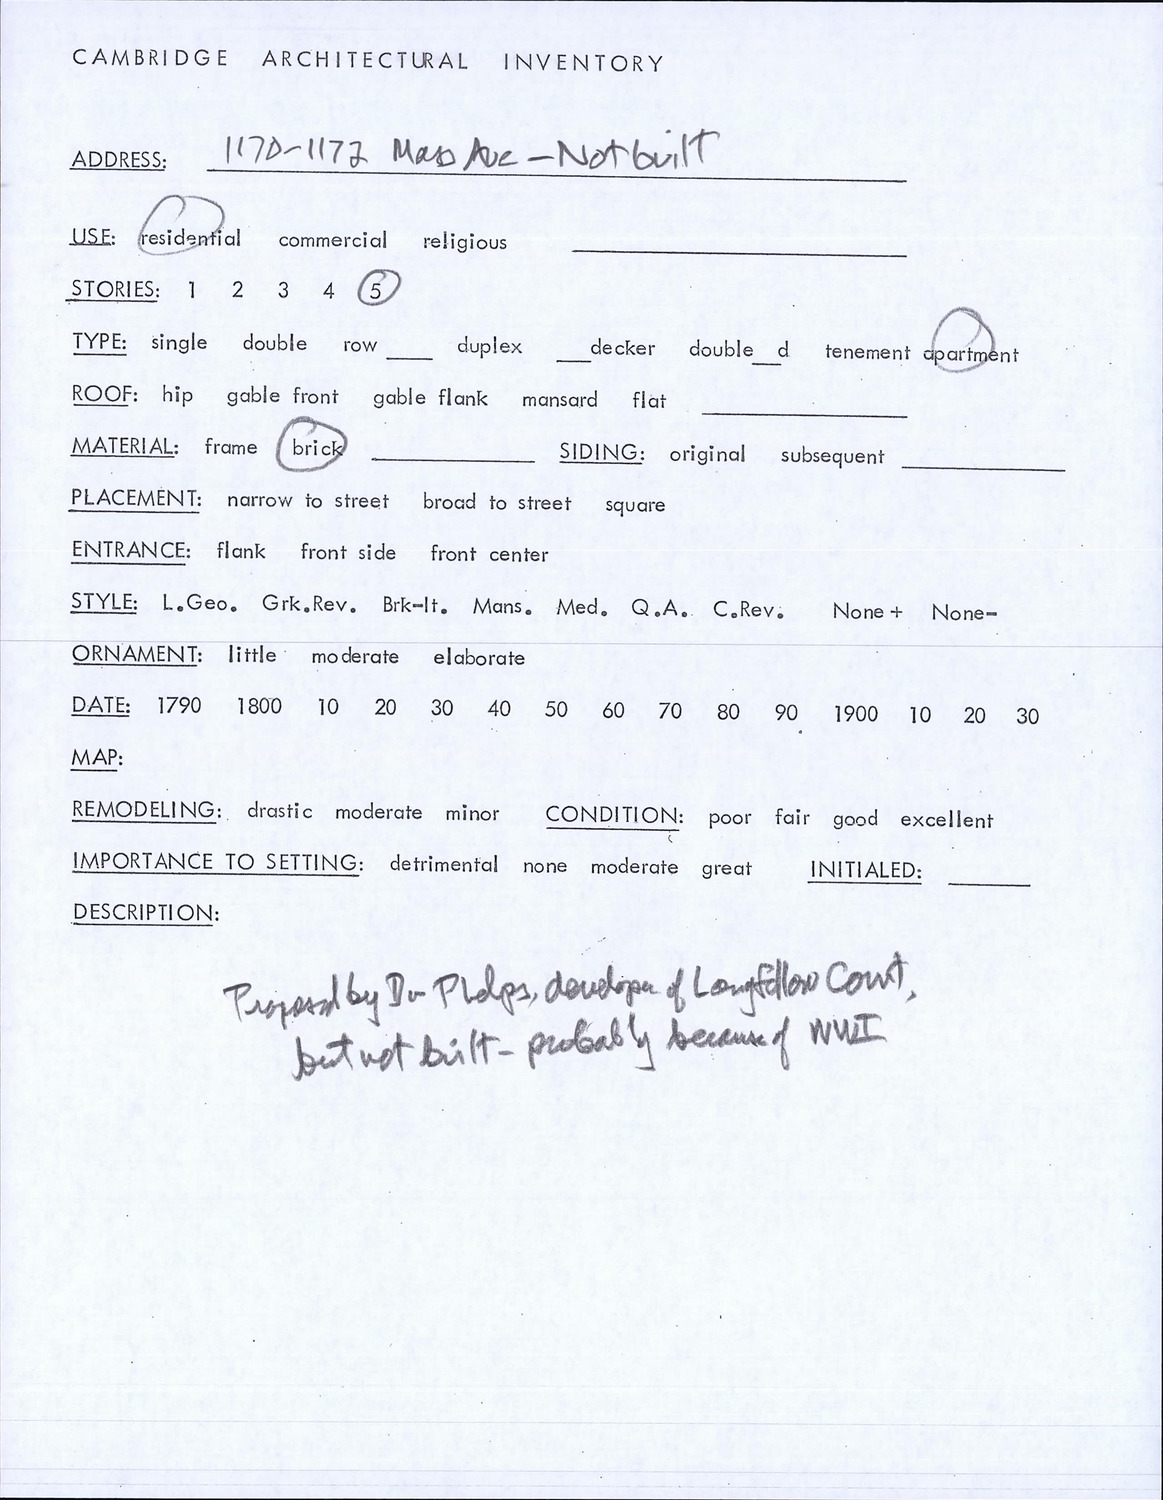 CAMBRIDGE ARCHITECTURAL INVENTORY
ADDRESS: 1170-1172 Mass Ave - Not built
USE: residential commercial religious
STORIES: 1 2 3 4 5
TYPE: single double row ____ duplex ___decker double__d tenement apartment
ROOF: hip gable front gable flank mansard flat
MATERIAL: frame brick ____ SIDING: original subsequent ____
PLACEMENT: narrow to street broad to street square
ENTRANCE: flank front side front center
STYLE: L.Geo. Grk.Rev. Brk-It. Mans. Med. Q.A. C.Rev. None+ None-
ORNAMENT: little moderate elaborate
DATE: 1790 1800 10 20 30 40 50 60 70 80 90 1900 10 20 30
MAP:
REMODELING: drastic moderate minor CONDITION: poor fair good excellent
IMPORTANCE TO SETTING: detrimental none moderate great INITIALED: ____
DESCRIPTION:
Proposed by Dr Phelps, developer of Longfellow Court,
but not built - probably because of WWI